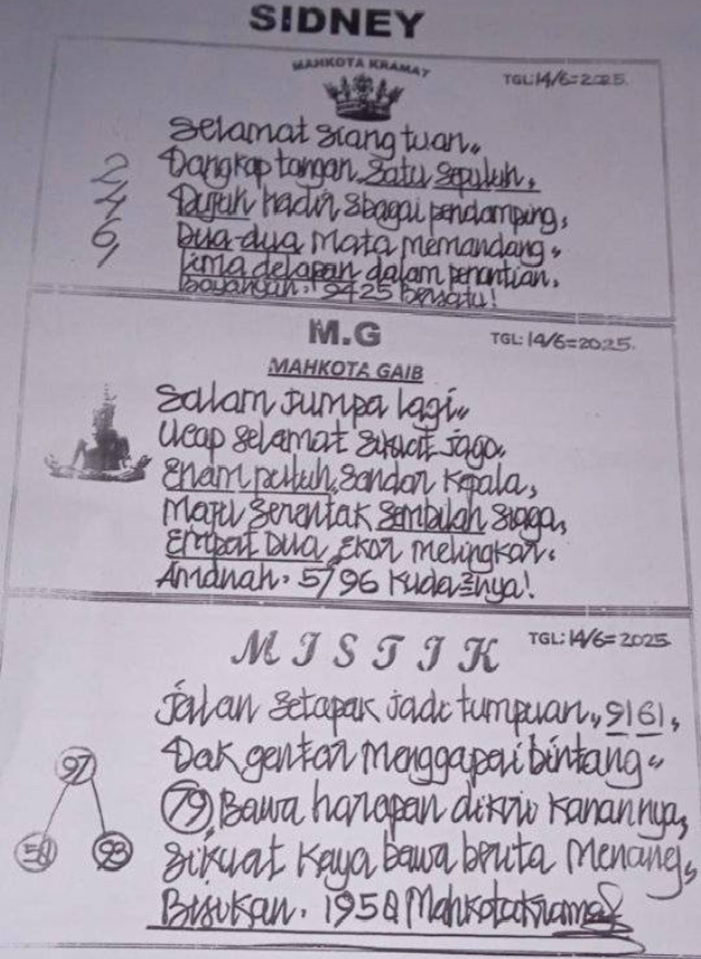 SIDNEY
MAHKOTA KRAMAT
TGL:14/6=2025.
Selamat siang tuan,,
Dangkap tangan satu sepuluh,
2
Dujuh hadir sbagai pendamping,
4
Dua-dua mata memandang,,
6
lima delapan dalam penantian,
7
Bayangan, 9425 bersatu!
M.G
TGL: 14/6=2025.
MAHKOTA GAIB
Salam jumpa lagi,,
Ucap selamat sikuat jago,
Enam puluh, Sandar kepala,
Maju serentak sembilan siaga,
Empat Dua, Ekor melingkar.
Amanah, 5796 Kuda=nya!
MISTIK
TGL: 14/6=2025
Jalan setapak jadi tumpuan,, 9161,
97
Dak gentar menggapai bintang,,
79, Bawa harapan dikiri kanannya,
93
Sikuat kaya bawa berita menang,,
Bisikan, 1958 Mahkotakramat